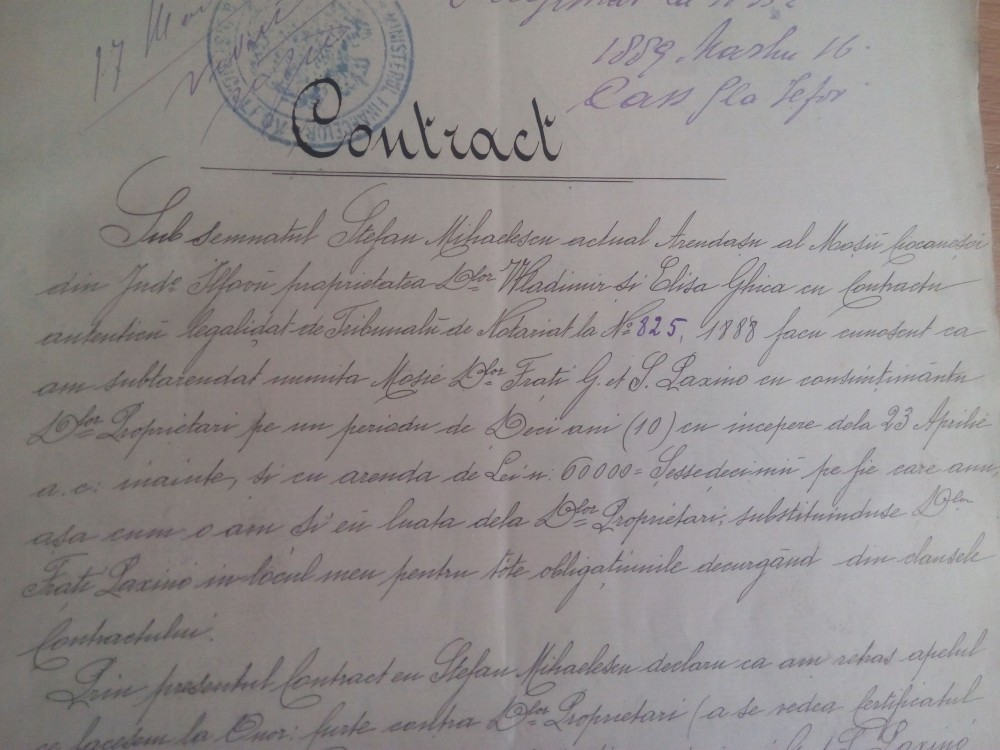 17
MINISTERUL FINANCELOR
1889 Martiu 16.
Contract
Sub semnatul Stefan Mihaelescu actual Arendașu al Moșii Cocanesci
din Judᵉ Ilfovŭ proprietatea Dˡᵒʳ Wladimir și Elisa Ghica cu Contractu
autenticŭ legalizat de Tribunalŭ de Notariat la Nº 825, 1888 facu cunoscut ca
am subtarendat numita Mosie Dˡᵒʳ Frați G. et S. Paxino cu consimțimântu
Dˡᵒʳ Proprietari pe un periodu de Deci ani (10) cu incepere dela 23 Aprilie
a.c: inainte, si cu arenda de Lei n. 60000= Șessedecimii pe fie care anu,
așa cum o am și eŭ luata dela Dˡᵒʳ Proprietari, substituinduse Dˡᵒʳ
Frati Paxino in locul meu pentru tóte obligațiunile decurgând din clausele
Contractului.
Prin presentul Contract eu Stefan Mihaelescu declaru ca am retras apelul
ce facesem la Onor: curte contra Dˡᵒʳ Proprietari (a se vedea Certificatul
Paxino